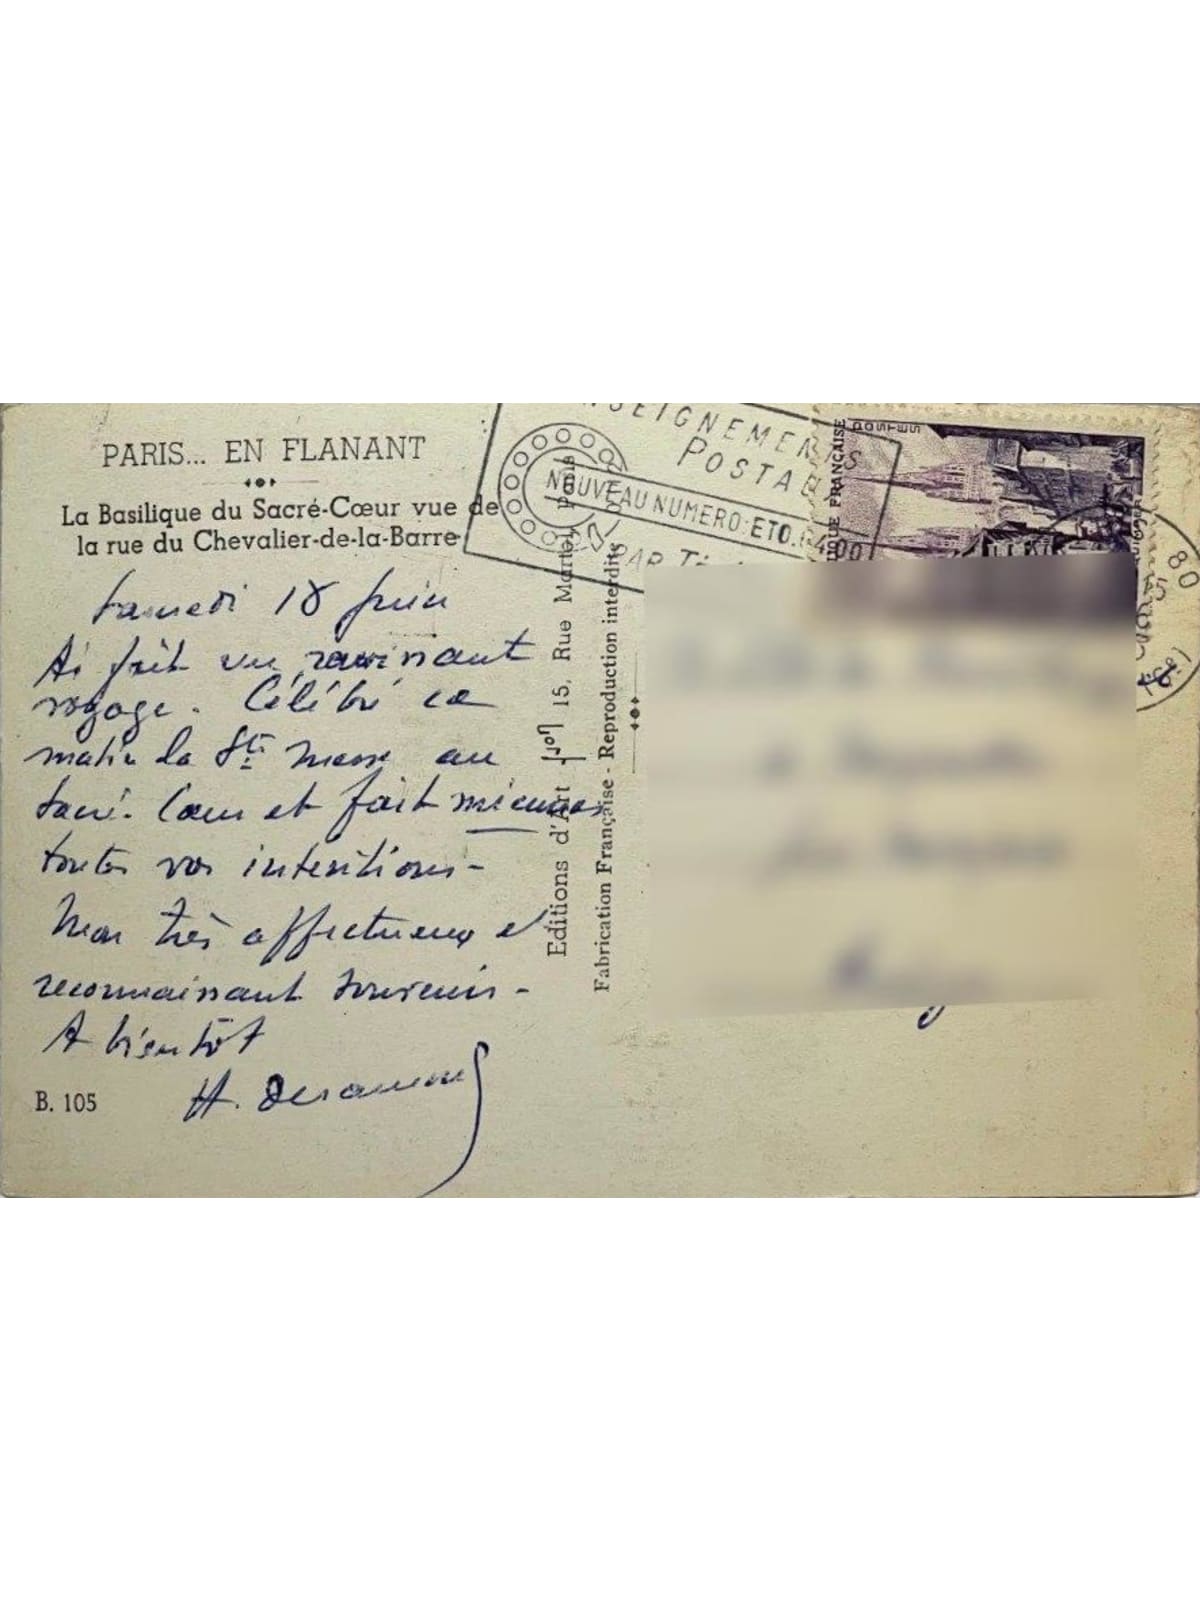 PARIS... EN FLANANT
La Basilique du Sacré-Cœur vue de
la rue du Chevalier-de-la-Barre
Samedi 18 Juin
Ai fait un ravissant
voyage. Célébré ce
matin la Ste Messe au
Sacré-Cœur et fait miennes
toutes vos intentions -
Mon très affectueux et
reconnaissant souvenir -
A bientôt
H.
B. 105
Editions d'Art 15, Rue Martel, Paris
Fabrication Française - Reproduction interdite
POSTAUX
NOUVEAU NUMERO: ETO.
PAR
POSTES
FRANÇAISE